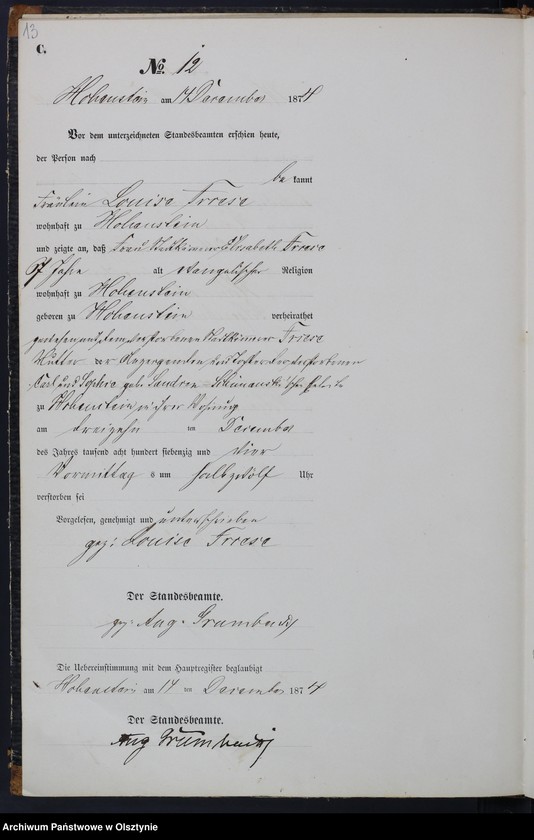 13
C.
No. 12
Hohenstein am 14 December 1874
Vor dem unterzeichneten Standesbeamten erschien heute,
der Person nach
be kannt
Fräulein Louise Freese
wohnhaft zu Hohenstein
und zeigte an, daß Frau Elisabeth Freese
67 Jahre alt evangelischer Religion
wohnhaft zu Hohenstein
geboren zu Hohenstein verheirathet
gewesen mit dem verstorbenen Freese
Mutter der Anzeigenden, der verstorbenen
Carl und Sophie geb. Schimanski
zu Hohenstein in ihrer Wohnung
am dreizehn ten December
des Jahres tausend acht hundert siebenzig und vier
Vormittag s um halbzwölf Uhr
verstorben sei
Vorgelesen, genehmigt und unterschrieben
gez: Louise Freese
Der Standesbeamte.
gz. Aug.
Die Uebereinstimmung mit dem Hauptregister beglaubigt
Hohenstein am 14 ten December 1874
Der Standesbeamte.
Aug
Archiwum Państwowe w Olsztynie